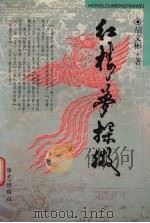 HONGLOUMENGTANWEI
胡文彬·著
红楼梦探微
华艺出版社